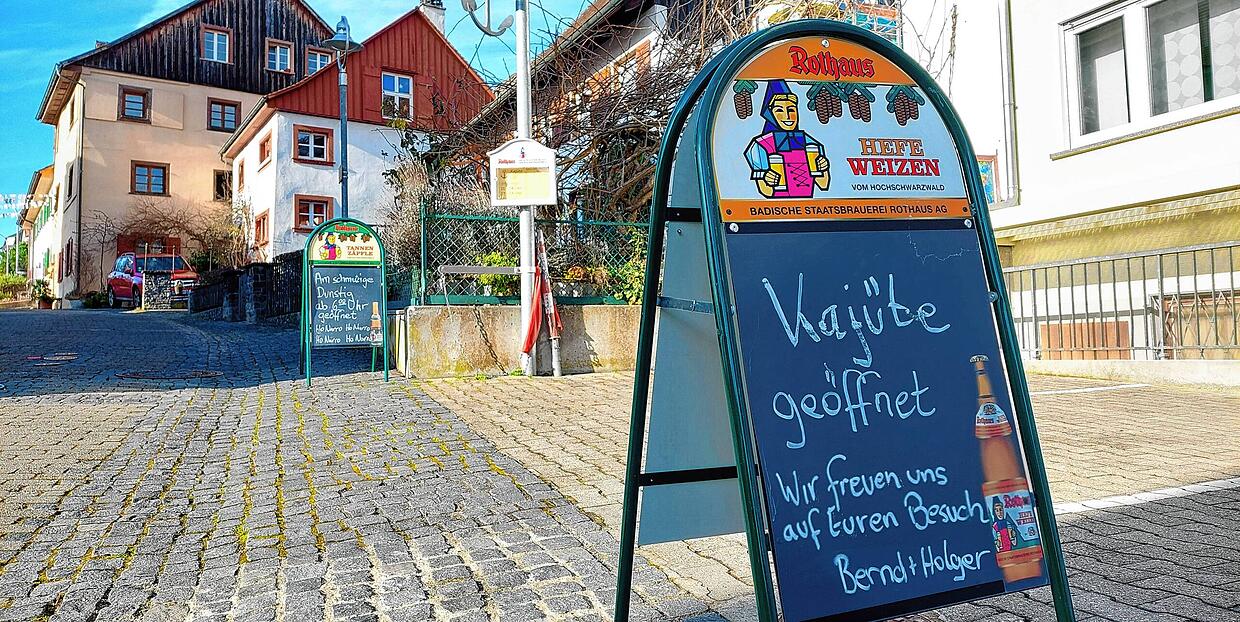 Rothaus
HEFE
WEIZEN
VOM HOCHSCHWARZWALD
BADISCHE STAATSBRAUEREI ROTHAUS AG
Kajüte
geöffnet
Wir freuen uns
auf Euren Besuch
Bernd + Holger
Rothaus
TANNEN
ZÄPFLE
Am schmutzige
Dunstig
ab Uhr
geöffnet
Ho Narro Ho Narro
Ho Narro Ho Narro
Rothaus